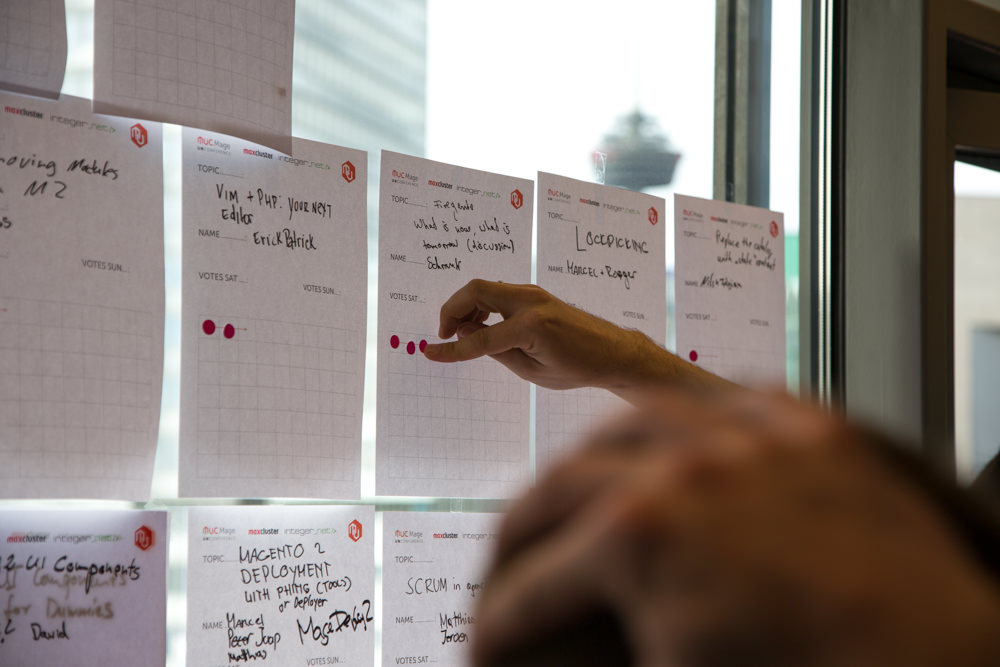 maxcluster integer_net
oving Modules
M2
VOTES SUN....
MUC Mage
UNCONFERENCE
maxcluster integer_net
TOPIC
VIM + PHP: YOUR NEXT
Editor
NAME
Erick Patrick
VOTES SAT
VOTES SUN
MUC Mage
UNCONFERENCE
maxcluster integer_net
TOPIC
Firegento
What is now, what is
tomorrow (discussion)
NAME
VOTES SAT
MUC Mage
UNCONFERENCE
maxcluster integer_net
TOPIC
LOCKPICKING
NAME
MARCEL +
VOTES SUN
MUC Mage
maxcluster integer_net
TOPIC
Replace the catalog
with
NAME
VOTES SAT
VOTES SUN
maxcluster integer_net
2 UI Components
Components
for Dummies
David
MUC Mage
UNCONFERENCE
maxcluster integer_net
TOPIC
MAGENTO 2
DEPLOYMENT
WITH PHING (TOOLS)
or Deployer
NAME
Marcel
Peter Jaap
Matthias
MageDeploy2
VOTES SUN
MUC Mage
UNCONFERENCE
maxcluster integer_net
TOPIC
SCRUM in
NAME
Matthias
Jeroen
VOTES SAT